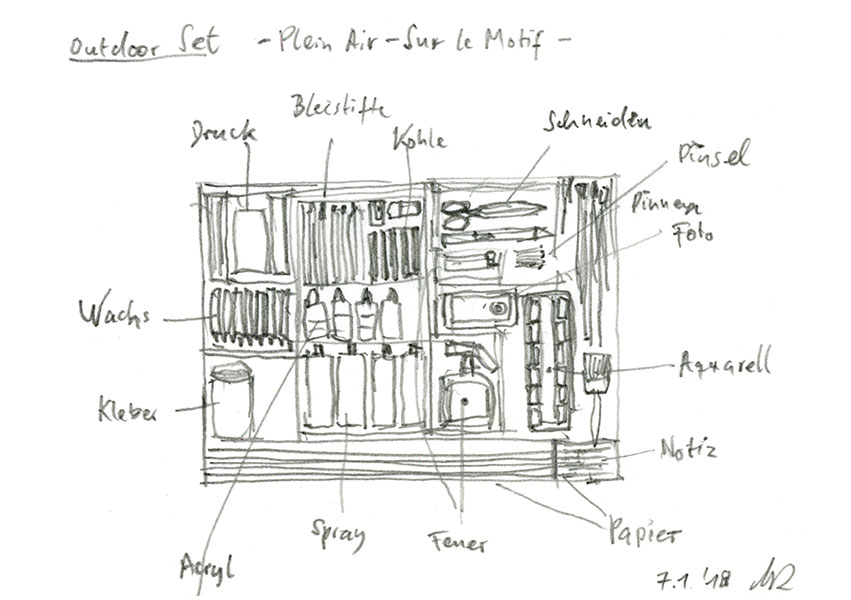 Outdoor Set - Plein Air - Sur le Motif -
Bleistifte
Druck
Kohle
Schneiden
Pinsel
Pinnen
Foto
Wachs
Aquarell
Kleber
Notiz
Spray
Feuer
Papier
Acryl
7.1.'18